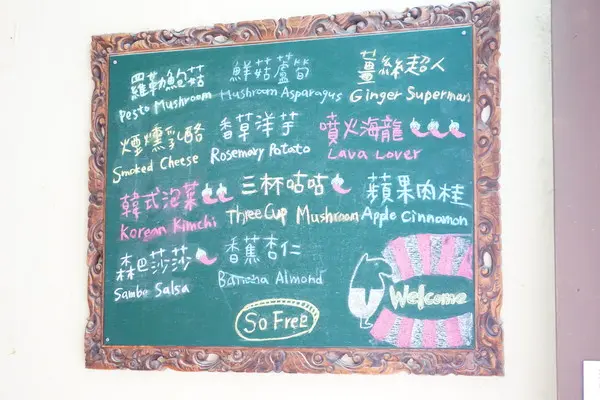 羅勒鮑菇
Pesto Mushroom
鮮菇蘆筍
Mushroom Asparagus
薑絲超人
Ginger Superman
煙燻乳酪
Smoked Cheese
香草洋芋
Rosemary Potato
噴火海龍
Lava Lover
韓式泡菜
Korean Kimchi
三杯咕咕
Three Cup Mushroom
蘋果肉桂
Apple Cinnamon
森巴莎莎
Samba Salsa
香蕉杏仁
Banana Almond
Welcome
So Free